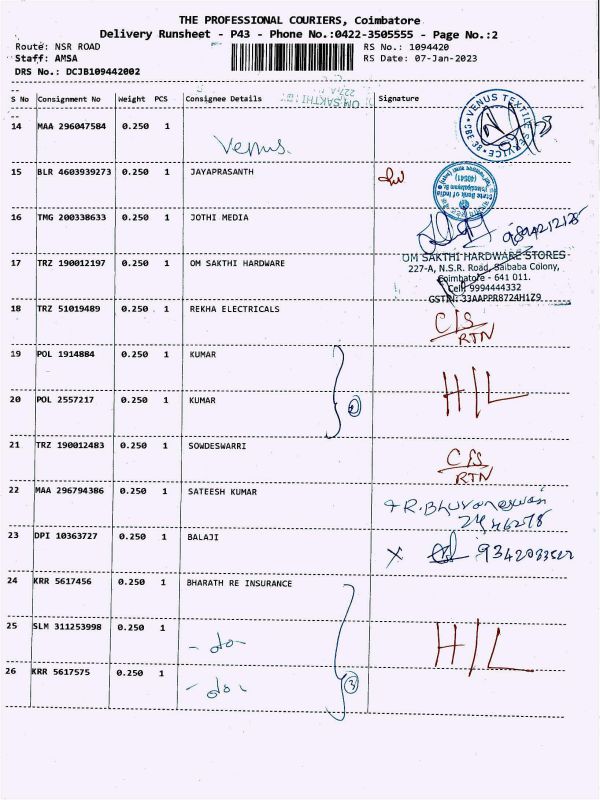 THE PROFESSIONAL COURIERS, Coimbatore
Delivery Runsheet - P43 - Phone No.:0422-3505555 - Page No.:2
Route: NSR ROAD RS No.: 1094420
Staff: AMSA RS Date: 07-Jan-2023
DRS No.: DCJB109442002
OM SAKTHI
S No Consignment No Weight PCS Consignee Details Signature
14 MAA 296047584 0.250 1 Venus.
VENUS TEXTILE SERVICE CBE 38
15 BLR 4603939273 0.250 1 JAYAPRASANTH
State Bank of India
(40541)
16 TMG 200338633 0.250 1 JOTHI MEDIA
17 TRZ 190012197 0.250 1 OM SAKTHI HARDWARE
OM SAKTHI HARDWARE STORES
227-A, N.S.R. Road, Saibaba Colony,
Coimbatore - 641 011.
Cell: 9994444332
GSTIN: 33AAPPR8724H1Z9
18 TRZ 51019489 0.250 1 REKHA ELECTRICALS C/S
RTN
19 POL 1914884 0.250 1 KUMAR
20 POL 2557217 0.250 1 KUMAR 2 H/L
21 TRZ 190012483 0.250 1 SOWDESWARRI C/S
RTN
22 MAA 296794386 0.250 1 SATEESH KUMAR R. Bhuvaneswari
2446278
23 DPI 10363727 0.250 1 BALAJI X
24 KRR 5617456 0.250 1 BHARATH RE INSURANCE
25 SLM 311253998 0.250 1 - do - H/L
26 KRR 5617575 0.250 1 - do - 3